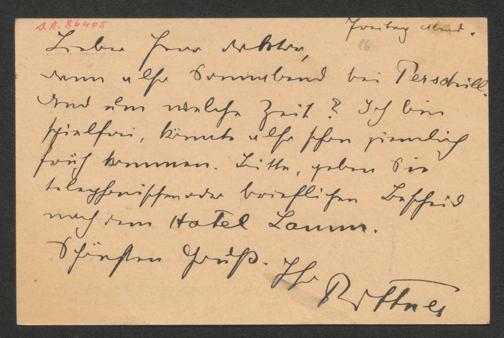 Freitag abend.
Lieber Herr Doktor,
denn also Sonnabend bei Perschill.
Und um welche Zeit? Ich bin
spielfrei, könnte also schon ziemlich
früh kommen. Bitte, geben Sie
telephonischen oder brieflichen Bescheid
nach dem Hotel Lamm.
Schönsten Gruß. Ihr
Rittner